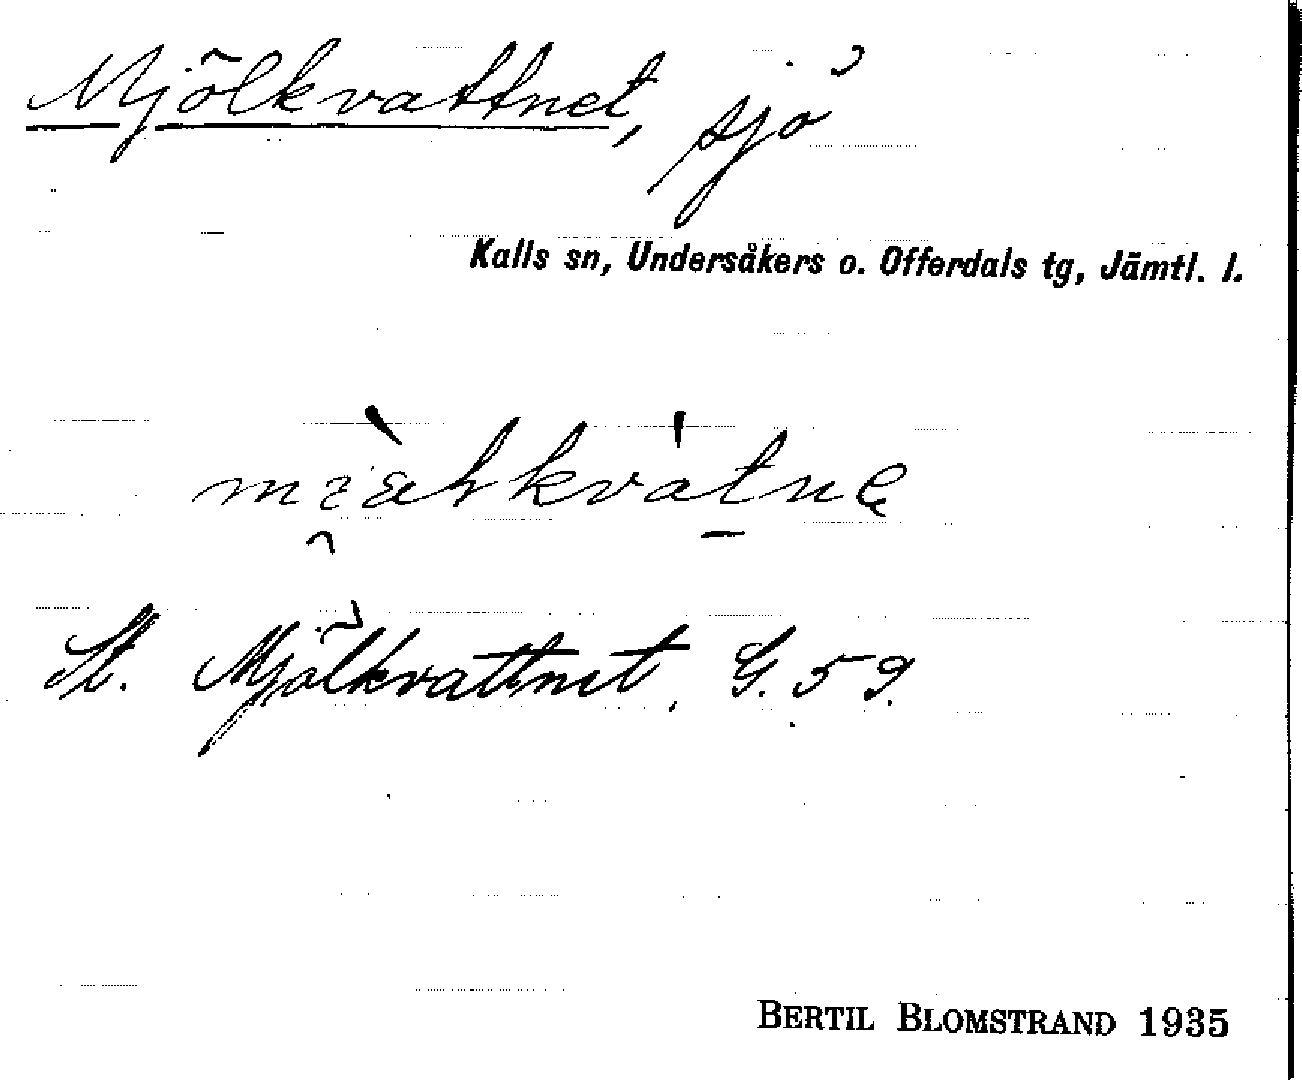 Mjölkvattnet, sjö
Kalls sn, Undersåkers o. Offerdals tg, Jämtl. l.
St. Mjölkvattnet, G. 59.
BERTIL BLOMSTRAND 1935